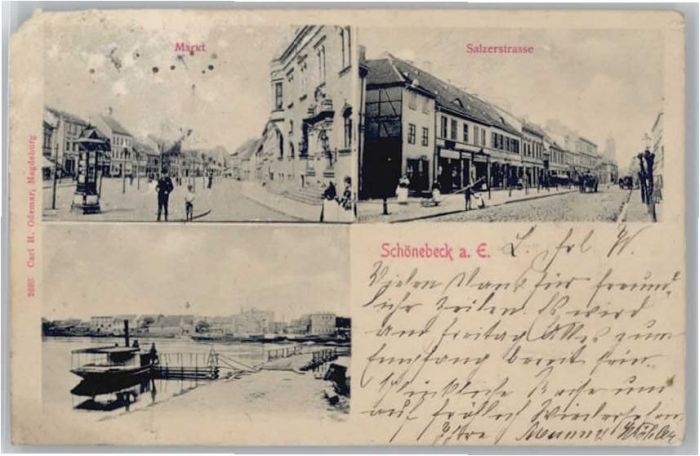 Markt
Salzerstrasse
2085 Carl H. Odemar, Magdeburg
Schönebeck a. E.
L. Frl W.
Vielen Dank für freund-
liche Zeilen. Es wird
am Freitag Alles zum
Empfang bereit sein.
Glückliche Reise und
auf fröhlich Wiedersehen
Ihre